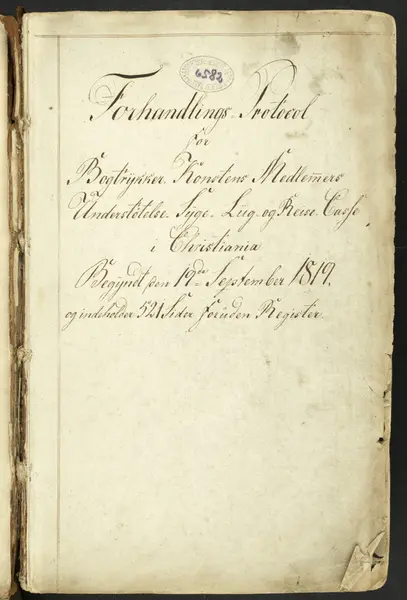 6582
Forhandlings-Protocol
for
Bogtrykker Konstens Medlem̄ers
Understøtelse, Syge-Liig-og Reise-Casse
i Christiania
Begÿndt den 19de September 1819.
og indeholder 521 Sider foruden Register.